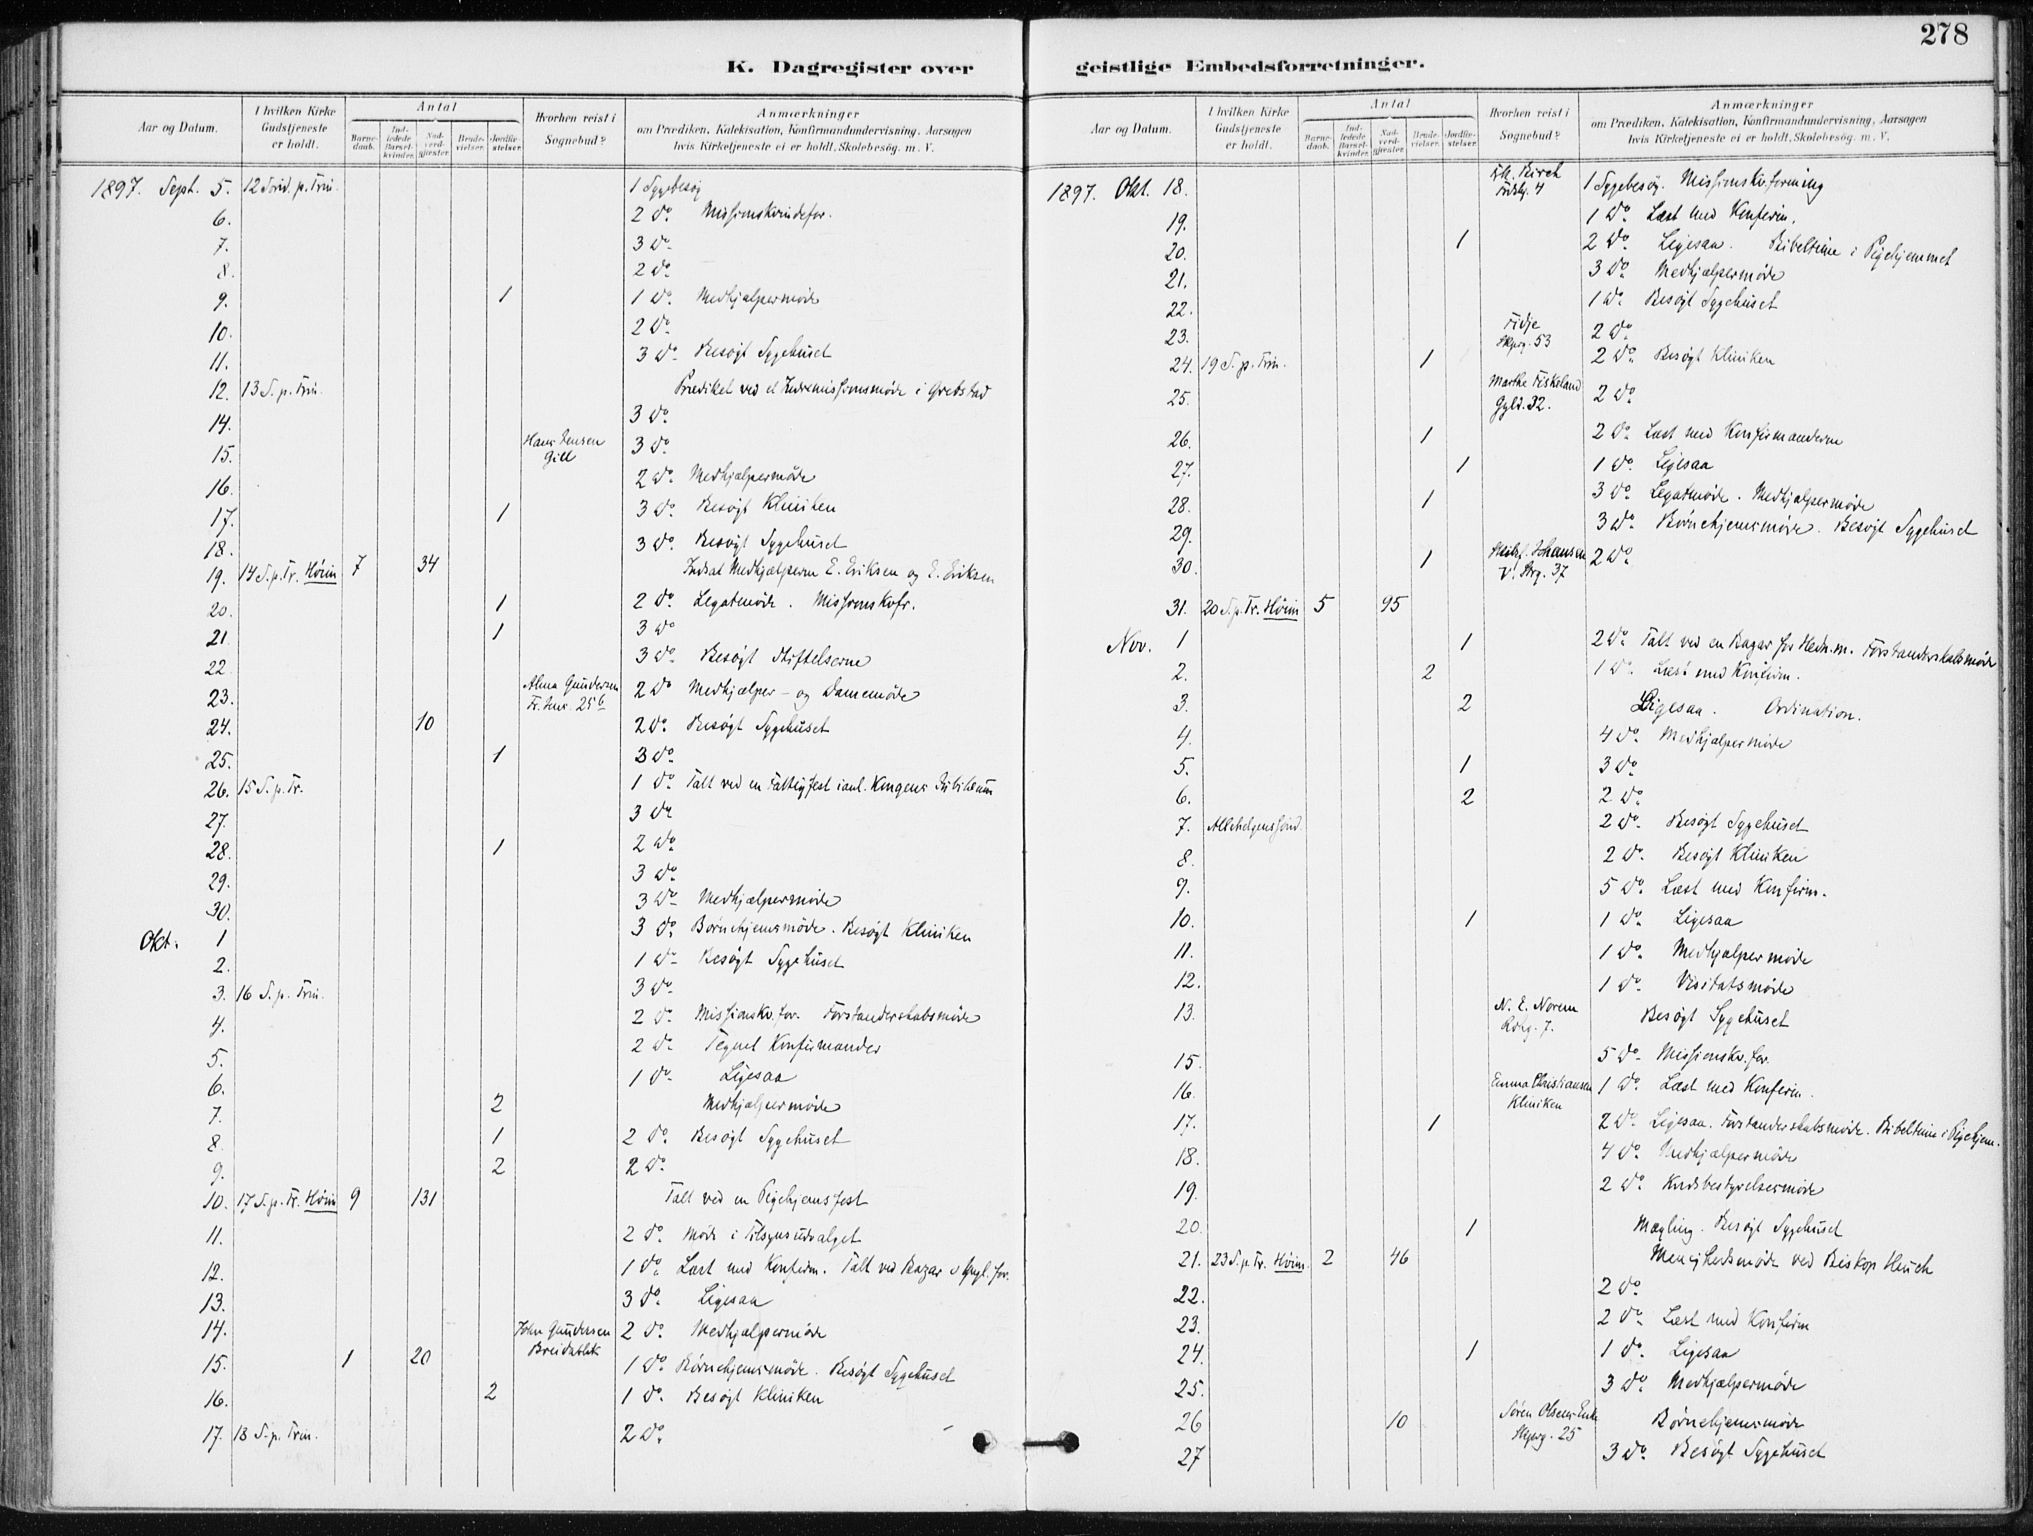 278
K. Dagregister over geistlige Embedsforretninger.
Aar og Datum. | I hvilken Kirke Gudstjeneste er holdt. | Antal | Barnedaab. | Indledede Barselkvinder. | Nadverdgjæster. | Brudevielser. | Jordfæstelser. | Hvorhen reist i Sognebud? | Anmærkninger om Prædiken, Katekisation, Konfirmandundervisning, Aarsagen hvis Kirketjeneste ei er holdt, Skolebesøg. m. V.
1897. Sept. 5. 12 Sønd. p. Trin. 1 Sygebesøg
6. 2 Do. Missionskvindefor.
7. 3 Do.
8. 2 Do.
9. 1 1 Do. Medhjælpermøde
10. 2 Do.
11. 3 Do. Besøgt Sygehuset
12. 13 S. p. Trin. Prædiket ved et Indremissionsmøde i Grebstad
14. 3 Do.
15. Hans Jensen Gill 3 Do.
16. 2 Do. Medhjælpermøde
17. 1 3 Do. Besøgt Kliniken
18. 3 Do. Besøgt Sygehuset
19. 14 S. p. Tr. Høim 7 34 Indsat Medhjælperne E. Eriksen og E. Eriksen
20. 1 2 Do. Legatmøde. Missionskvfr.
21. 1 3 Do.
22. 3 Do. Besøgt Stiftelserne
23. Alma Gundersen 2 Do Medhjælper- og Damemøde
24. 10 2 Do. Besøgt Sygehuset
25. 1 3 Do.
26. 15 S. p. Tr. 1 Do. Talt ved en Fattigfest i anl. Kongens Jubilæum
27. 3 Do.
28. 1 2 Do.
29. 3 Do.
30. 3 Do. Medhjælpermøde
Okt. 1 3 Do. Børnehjemsmøde. Besøgt Kliniken
2. 1 Do. Besøgt Sygehuset
3. 16 S. p. Trin. 3 Do.
4. 2 Do. Missionskv.for. Forstanderskabsmøde
5. 2 Do. Tegnet Konfirmander
6. 1 Do. Ligesaa
7. 2 Medhjælpermøde
8. 1 2 Do. Besøgt Sygehuset
9. 2 2 Do.
10. 17 S. p. Tr. Høim 9 131 Talt ved en Pigehjemsfest
11. 2 Do. Møde i Tilsynsudvalget
12. 1 Do. Læst med Konfirm. Talt ved Bazar
13. 3 Do. Ligesaa
14. John Gundersen Breidablik 2 Do. Medhjælpermøde
15. 1 20 1 Do. Børnehjemsmøde. Besøgt Sygehuset
16. 2 1 Do. Besøgt Kliniken
17. 18 S. p. Trin. 2 Do.
Aar og Datum. | I hvilken Kirke Gudstjeneste er holdt. | Antal | Barnedaab. | Indledede Barselkvinder. | Nadverdgjæster. | Brudevielser. | Jordfæstelser. | Hvorhen reist i Sognebud? | Anmærkninger om Prædiken, Katekisation, Konfirmandundervisning, Aarsagen hvis Kirketjeneste ei er holdt, Skolebesøg. m. V.
1897. Okt. 18. 1 Sygebesøg. Missionskv.forening
19. 1 Do. Læst med Konfirm.
20. 1 2 Do. Ligesaa. Bibeltime i Pigehjemmet
21. 3 Do. Medhjælpermøde
22. 1 Do. Besøgt Sygehuset
23. Fidje Skprg. 53 2 Do.
24. 19 S. p. Trin. 1 2 Do. Besøgt Kliniken
25. Marthe Fiskeland Gyld. 32. 2 Do
26. 1 2 Do. Læst med Konfirmanderne
27. 1 1 Do. Ligesaa
28. 1 3 Do. Legatmøde. Medhjælpermøde
29. 3 Do. Børnehjemsmøde. Besøgt Sygehuset
30. 1 Johansen V. Strg. 37 2 Do.
31. 20 S. p. Tr. Høim 5 95
Nov. 1 1 2 Do. Talt ved en Bazar for Hedn.m. Forstanderskabsmøde
2. 2 1 Do. Læst med Konfirm.
3. 2 Ligesaa. Ordination.
4. 4 Do. Medhjælpermøde
5. 1 3 Do.
6. 2 2 Do.
7. Allehelgenssønd. 2 Do. Besøgt Sygehuset
8. 2 Do. Besøgt Kliniken
9. 5 Do. Læst med Konfirm.
10. 1 1 Do. Ligesaa
11. 1 Do. Medhjælpermøde
12. 1 Do. Visitatsmøde
13. N. E. Norem 7. Besøgt Sygehuset
15. 5 Do. Missionskv.for.
16. Emma Christiansen Kliniken 1 Do. Læst med Konfirm.
17. 1 2 Do. Ligesaa. Forstanderskabsmøde. Bibeltime i Pigehjem.
18. 4 Do. Medhjælpermøde
19. 2 Do. Kredsbestyrelsesmøde
20. 1 Mægling. Besøgt Sygehuset
21. 23 S. p. Tr. Høim. 2 46 Menighedsmøde ved Biskop Heuch
22. 2 Do.
23. 2 Do. Læst med Konfirm
24. 1 1 Do. Ligesaa
25. 3 Do. Medhjælpermøde
26 10 Søren Olsens Enke Skprg. 25 Børnehjemsmøde
27 3 Do. Besøgt Sygehuset